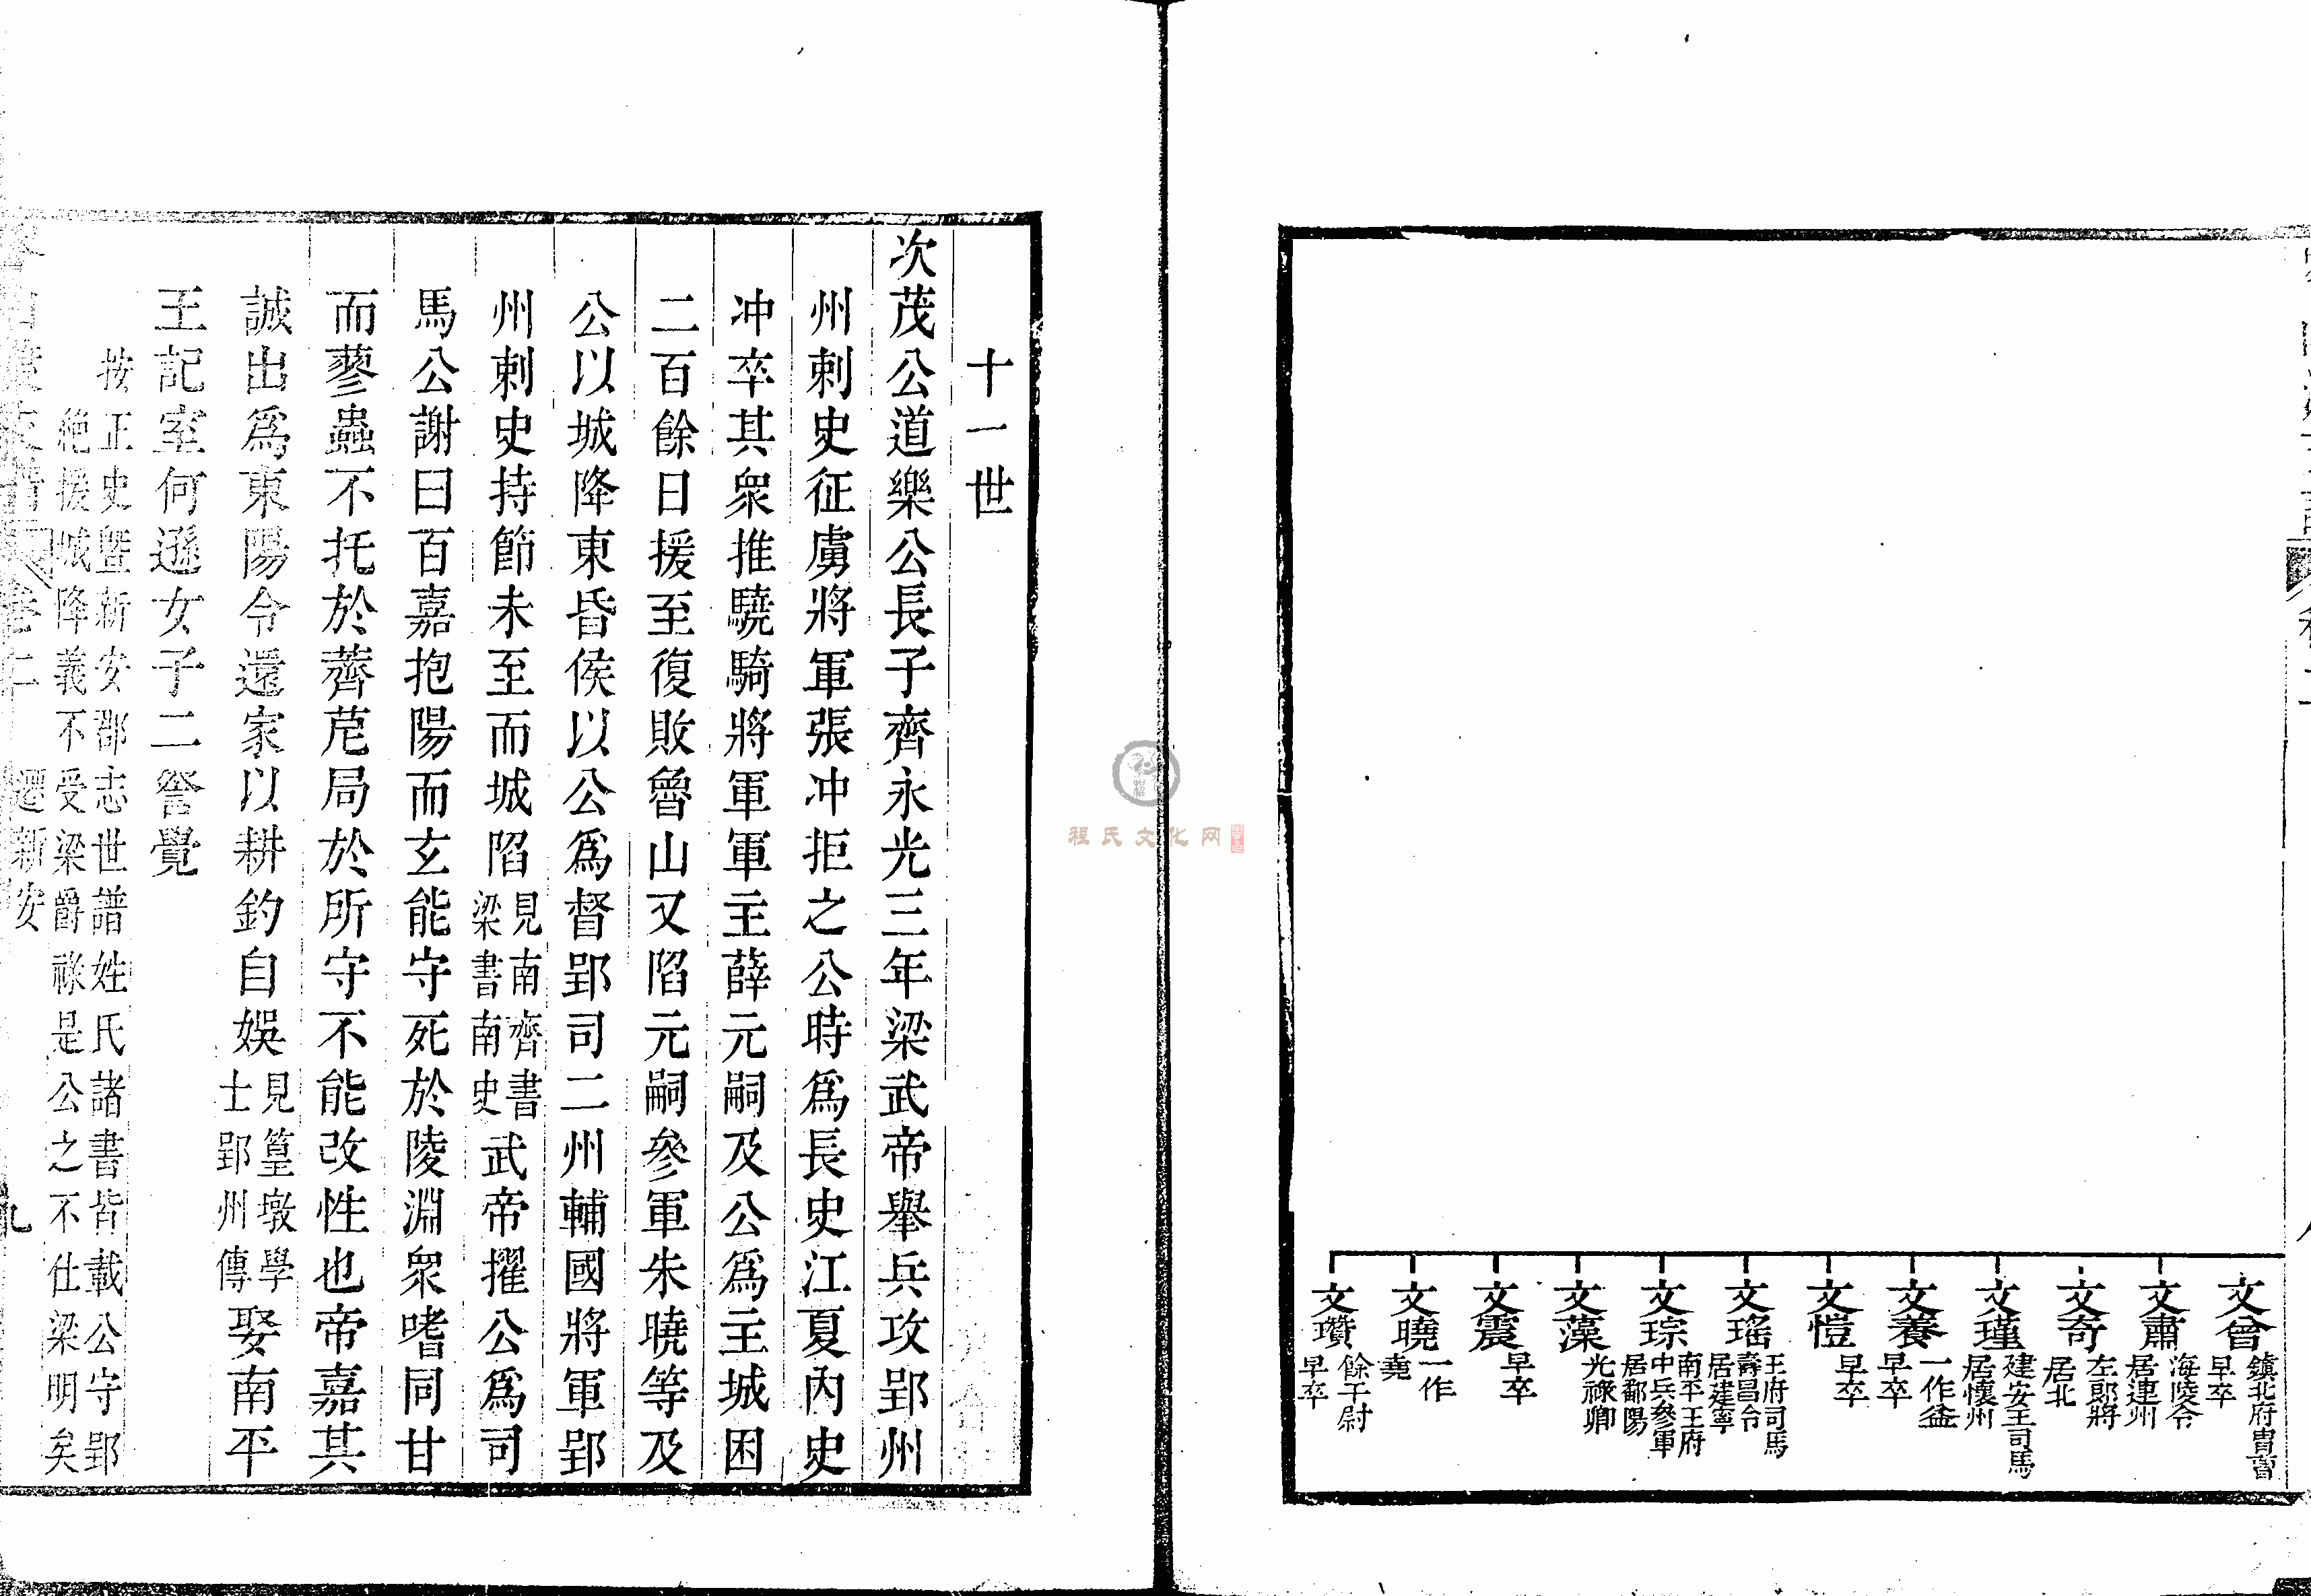 文曾 鎮北府曹書 早卒
文肅 海陵令 居連州
文奇 左郎將 居北
文瑾 建安王司馬 居懷州
文養 一作益 早卒
文愷 早卒
文瑤 王府司馬 壽昌令 居建寧
文琮 南平王府 中兵參軍 居鄱陽
文藻 光祿卿
文震 早卒
文曉 一作 蕘
文瓚 餘干尉 早卒
十一世
次茂公道樂公長子齊永光三年梁武帝舉兵攻郢州
州刺史征虜將軍張冲拒之公時爲長史江夏內史
冲卒其衆推驍騎將軍軍主薛元嗣及公爲主城困
二百餘日援至復敗魯山又陷元嗣參軍朱曉等及
公以城降東昏侯以公爲督郢司二州輔國將軍郢
州刺史持節未至而城陷見南齊書梁書南史武帝擢公爲司
馬公謝曰百嘉抱陽而玄能守死於陵淵衆嗜同甘
而蓼蟲不托於薺苨局於所守不能改性也帝嘉其
誠出爲東陽令還家以耕釣自娛見篁墩學士郢州傳娶南平
王記室何遜女子二詧覺
按正史暨新安郡志世譜姓氏諸書皆載公守郢
絶援城降義不受梁爵祿是公之不仕梁明矣
卷二 遷新安 九
程氏文化网